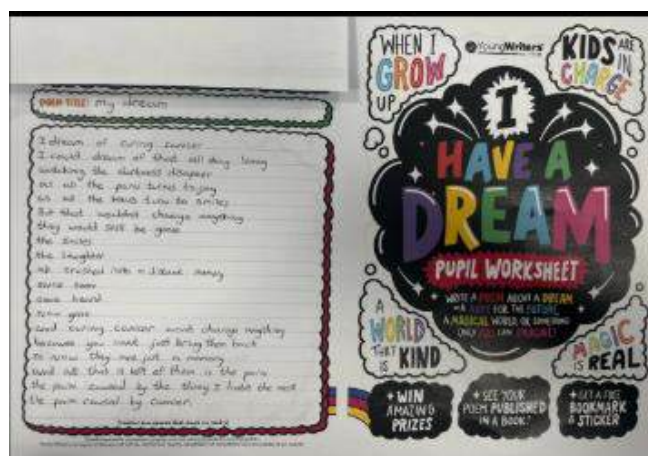 POEM TITLE: My dream
I dream of curing cancer
I could dream of that all day long
watching the darkness disapear
as all the pain turns to joy
as all the turn to smiles
But that wouldnt change anything
they would still be gone
the smiles
the laughter
all crushed into a distant memory
once seen
once heard
now gone
and curing cancer wont change anything
because you cant just bring them back
to now they are just a memory
and all that is left of them is the pain
the pain caused by the thing I hate the most
the pain caused by cancer.
WHEN I
GROW
UP
YoungWriters
KIDS ARE
IN
CHARGE
I
HAVE A
DREAM
PUPIL WORKSHEET
WRITE A POEM ABOUT A DREAM
FOR THE FUTURE,
A MAGICAL WORLD OR SOMETHING
ONLY YOU CAN IMAGINE!
A
WORLD
THAT
IS KIND
MAGIC
IS REAL
+ WIN
AMAZING
PRIZES
+ SEE YOUR
POEM PUBLISHED
IN A BOOK!
+ GET A FREE
BOOKMARK
& STICKER